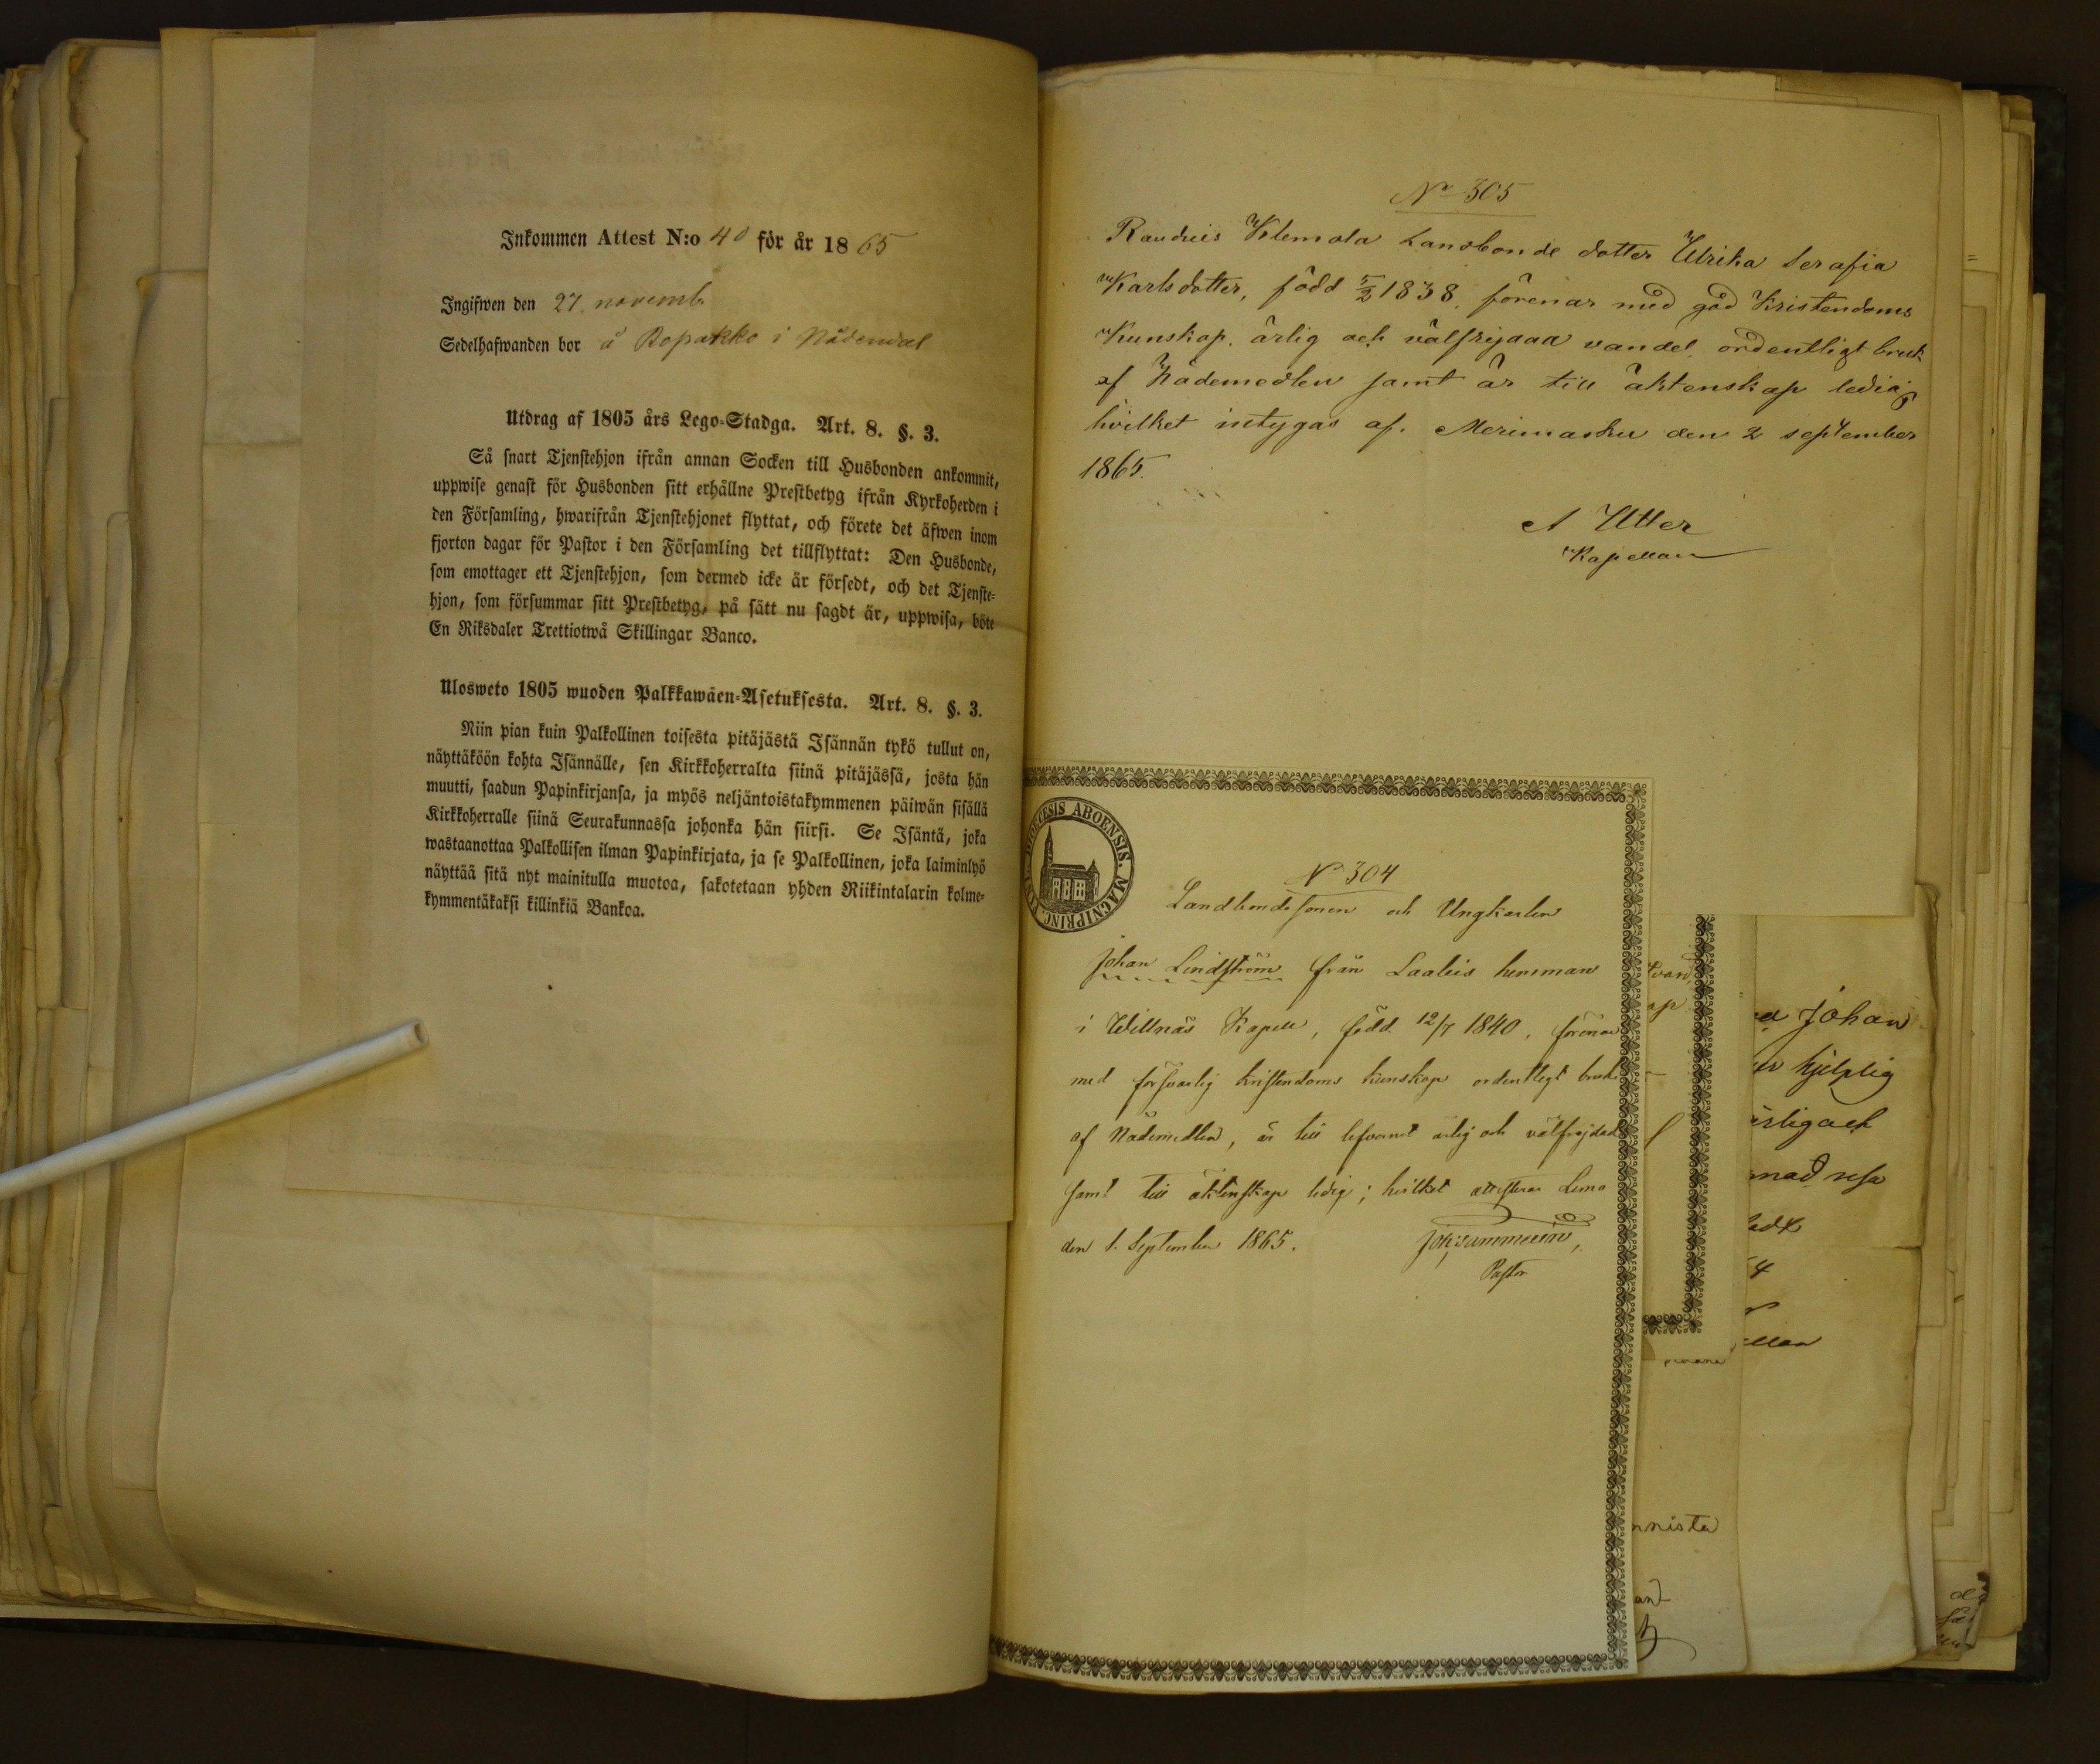 Inkommen Attest N:o 40 för år 1865
Ingifwen den 27. novemb.
Sedelhafwanden bor å Ropakko i Nådendal
Utdrag af 1805 års Lego-Stadga. Art. 8. §. 3.
Så snart Tjenstehjon ifrån annan Socken till Husbonden ankommit,
uppwise genast för Husbonden sitt erhållne Prestbetyg ifrån Kyrkoherden i
den Församling, hwarifrån Tjenstehjonet flyttat, och förete det äfwen inom
fjorton dagar för Pastor i den Församling det tillflyttat: Den Husbonde,
som emottager ett Tjenstehjon, som dermed icke är försedt, och det Tjenste-
hjon, som försummar sitt Prestbetyg, på sätt nu sagdt är, uppwisa, böte
En Riksdaler Trettiotwå Skillingar Banco.
Ulosweto 1805 wuoden Palkkawäen-Asetuksesta. Art. 8. §. 3.
Niin pian kuin Palkollinen toisesta pitäjästä Isännän tykö tullut on,
näyttäköön kohta Isännälle, sen Kirkkoherralta siinä pitäjässä, josta hän
muutti, saadun Papinkirjansa, ja myös neljäntoistakymmenen päiwän sisällä
Kirkkoherralle siinä Seurakunnassa johonka hän siirsi. Se Isäntä, joka
wastaanottaa Palkollisen ilman Papinkirjata, ja se Palkollinen, joka laiminlyö
näyttää sitä nyt mainitulla muotoa, sakotetaan yhden Riikintalarin kolme-
kymmentäkaksi killinkiä Bankoa.
No 305
Klemola Lansbonde dotter Ulrika Serafia
Karlsdotter, född 5/2 1838, förenar med god Kristendoms
Kunskap, ärlig och välfrejdad vandel, ordentligt bruk
af Nådemedlen samt är till äktenskap ledig
hvilket intygas af. Merimasku den 2 september
1865.
A Utter
Kapellan
DIOECESIS ABOENSIS. MAGNI PRINC.
No 304
Landbondesonen och Ungkarlen
Johan Lindström från Laaluis hemman
i Willnäs Kapell, född 12/7 1840, förenar
med försvarlig kristendoms kunskap ordentligt bruk
af Nådemedlen, är till lefvernet ärlig och välfrejdad
samt till äktenskap ledig; hvilket attesterar Lemo
den 1. September 1865.
Pastor
Johan
hjelplig
ärlig och
nnista